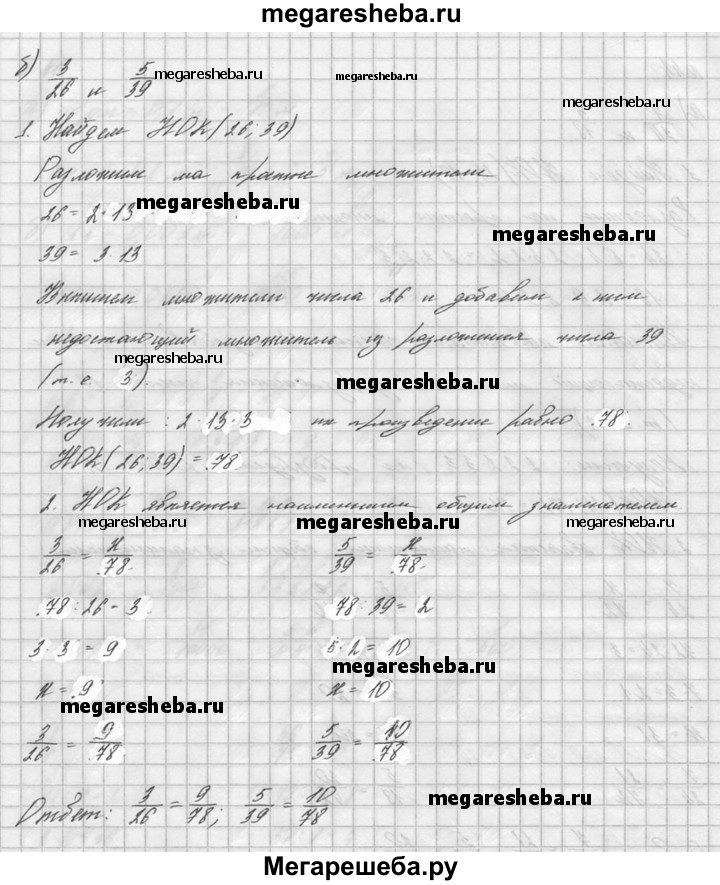 megaresheba.ru
б) 3/26 и 5/39 megaresheba.ru megaresheba.ru
megaresheba.ru
1. Найдем НОК(26; 39)
Разложим на простые множители
26 = 2·13 megaresheba.ru
megaresheba.ru
39 = 3·13
Выпишем множители числа 26 и добавим к ним
недостающий множитель из разложения числа 39
megaresheba.ru
(т.е. 3). megaresheba.ru
Получили: 2·13·3 их произведение равно 78.
НОК(26; 39) = 78
2. НОК является наименьшим общим знаменателем
megaresheba.ru megaresheba.ru megaresheba.ru
3/26 = x/78 5/39 = x/78
78 : 26 = 3 78 : 39 = 2
3·3 = 9 5·2 = 10
megaresheba.ru
x = 9 x = 10
megaresheba.ru
3/26 = 9/78 5/39 = 10/78
Ответ: 3/26 = 9/78; 5/39 = 10/78 megaresheba.ru
Мегарешеба.ру